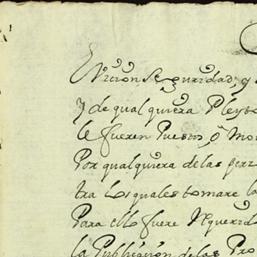 Eviccion Seguridad, y
y de qualquiera Pleyto
le fueren Puestos, o mo
Por qualquiera de las par
tra los quales tomare la
Para ello fuere Requerido
la Publicacion de las Pro